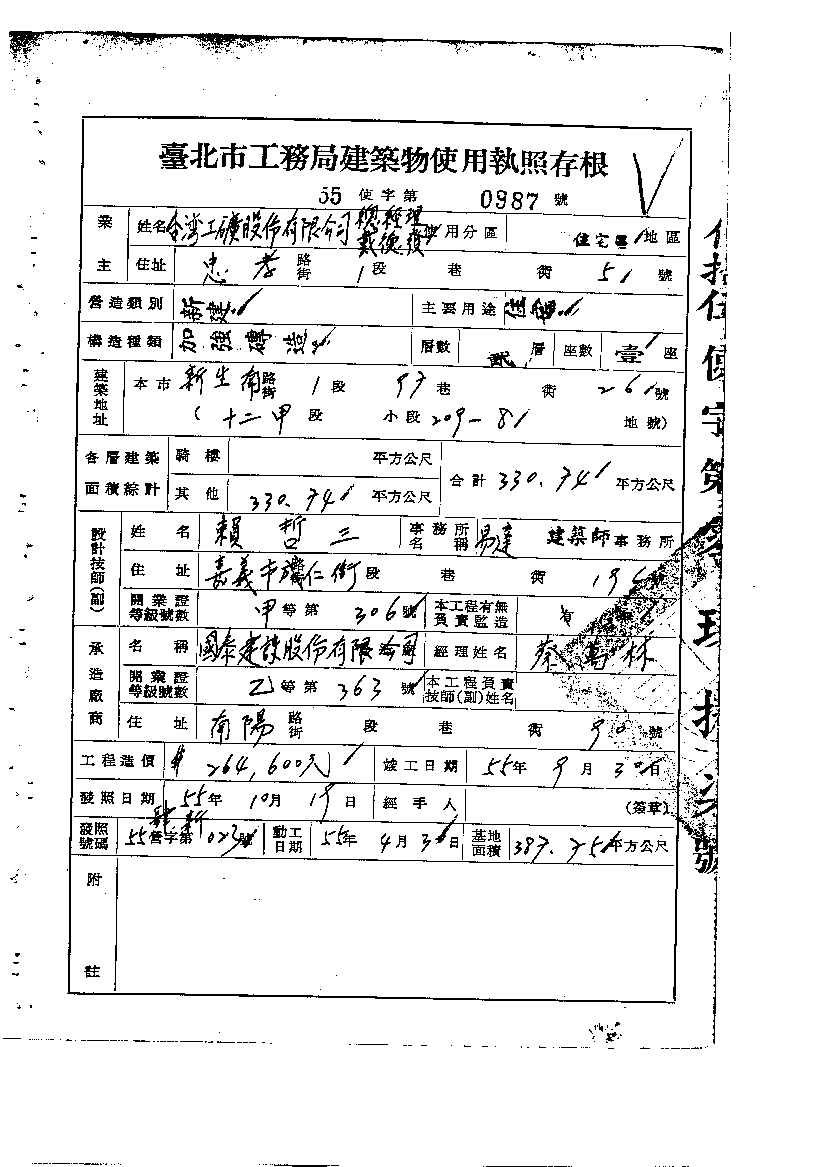 臺北市工務局建築物使用執照存根
55 使字第 0987 號
業主 姓名 台灣工礦股份有限公司 總經理 戴德發 使用分區 住宅區 地區
住址 忠孝 路街 1 段 巷 街 51 號
營造類別 新建 主要用途 住宅
構造種類 加強磚造 層數 貳 層 座數 壹 座
建築地址 本市 新生南 路街 1 段 97 巷 街 26 號
( 十二甲 段 小段 209-81 地號)
各層建築面積綜計 騎樓 平方公尺 合計 330.74 平方公尺
其他 330.74 平方公尺
設計技師(副) 姓名 賴哲三 事務所名稱 易達 建築師事務所
住址 嘉義市 仁街 段 巷 街 號
開業證等級號數 甲等第 306 號 本工程有無負責監造
承造廠商 名稱 國泰建設股份有限公司 經理姓名 蔡萬林
開業證等級號數 乙等第 363 號 本工程負責技師(副)姓名
住址 南陽 路街 段 巷 街 90 號
工程造價 264,600元 竣工日期 55年 9月 30日
發照日期 55年 10月 19日 經手人 (簽章)
發照號碼 55營字第 023 號 動工日期 55年 4月 日 基地面積 387.75 平方公尺
附註
伍拾伍使字第零玖捌柒號